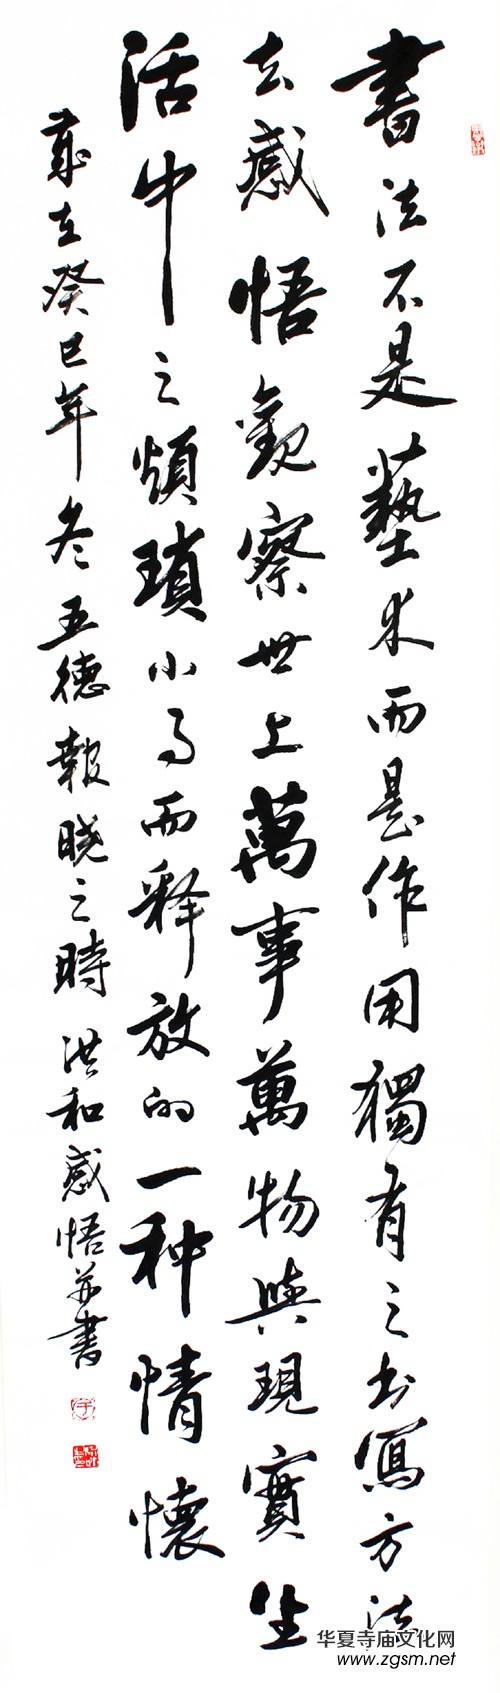 書法不是藝术而是作用獨有之书寫方法
去感悟觀察世上萬事萬物與現實生
活中之煩瑣小事而释放的一种情懷
歲在癸巳年冬五德報晓之時洪和感悟并書
华夏寺庙文化网
www.zgsm.net